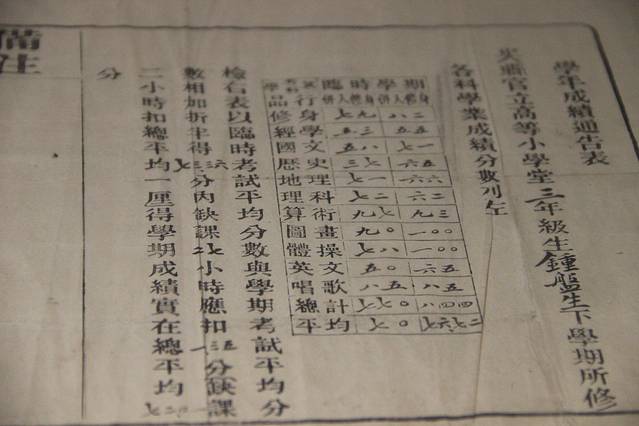 學年成績通告表
縣官立高等小學堂三年級生鍾盤生下學期所修
各科學業成績分數列左
臨時 學期
品行
修身 七九 八二
經學 五三 五五
國文 五八 七一
歷史 三七 六五
地理 七一 六六
理科 七二 六二
算術 九七 九三
圖畫 九〇 一〇〇
體操 七八 一〇〇
英文 五〇 六五
唱歌 八五 八五
總計 七七〇 八四四
平均 七〇 七六七二
檢右表以臨時考試平均分數與學期考試平均分
數相加折半得七三三六分內缺課二七小時應扣一三五分(缺課
二小時扣總平均一厘得學期成績實在總平均七二〇一
分
備注